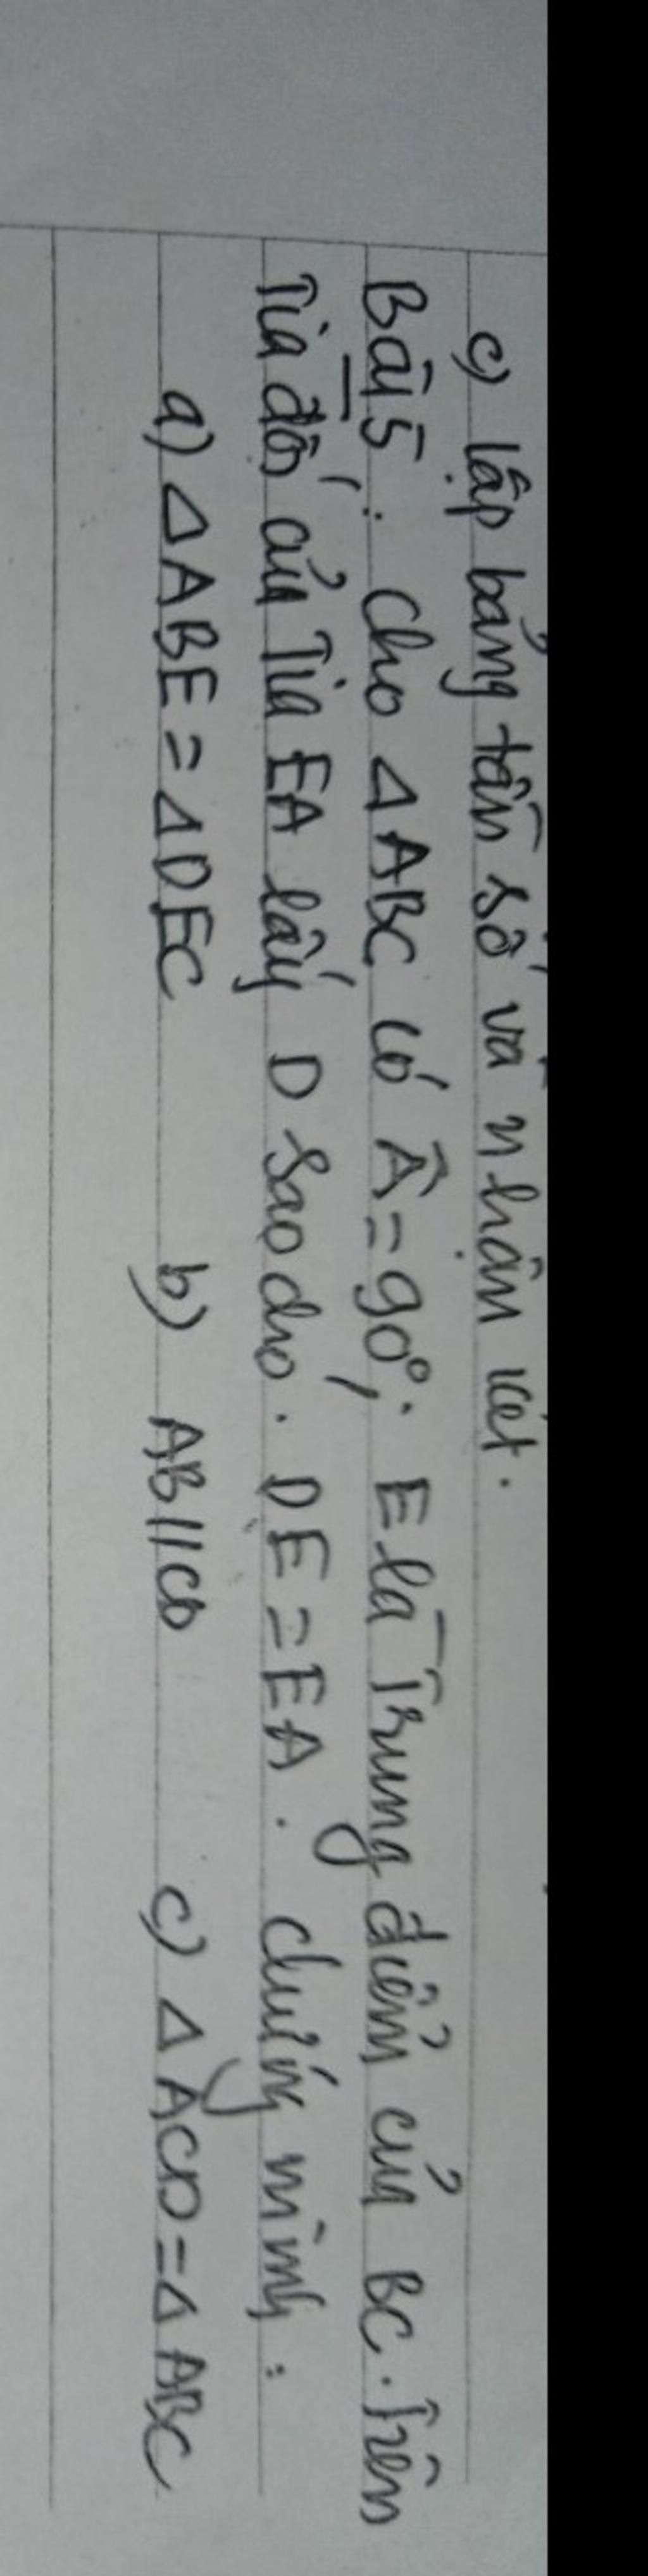 c) lập bảng tần số và nhận xét.
Bài 5: Cho △ABC có Â=90°; E là Trung điểm của BC. Trên
Tia đối của Tia EA lấy D sao cho. DE=EA. Chứng minh:
a) △ABE=△DEC b) AB//CD c) △ACD=△ABC